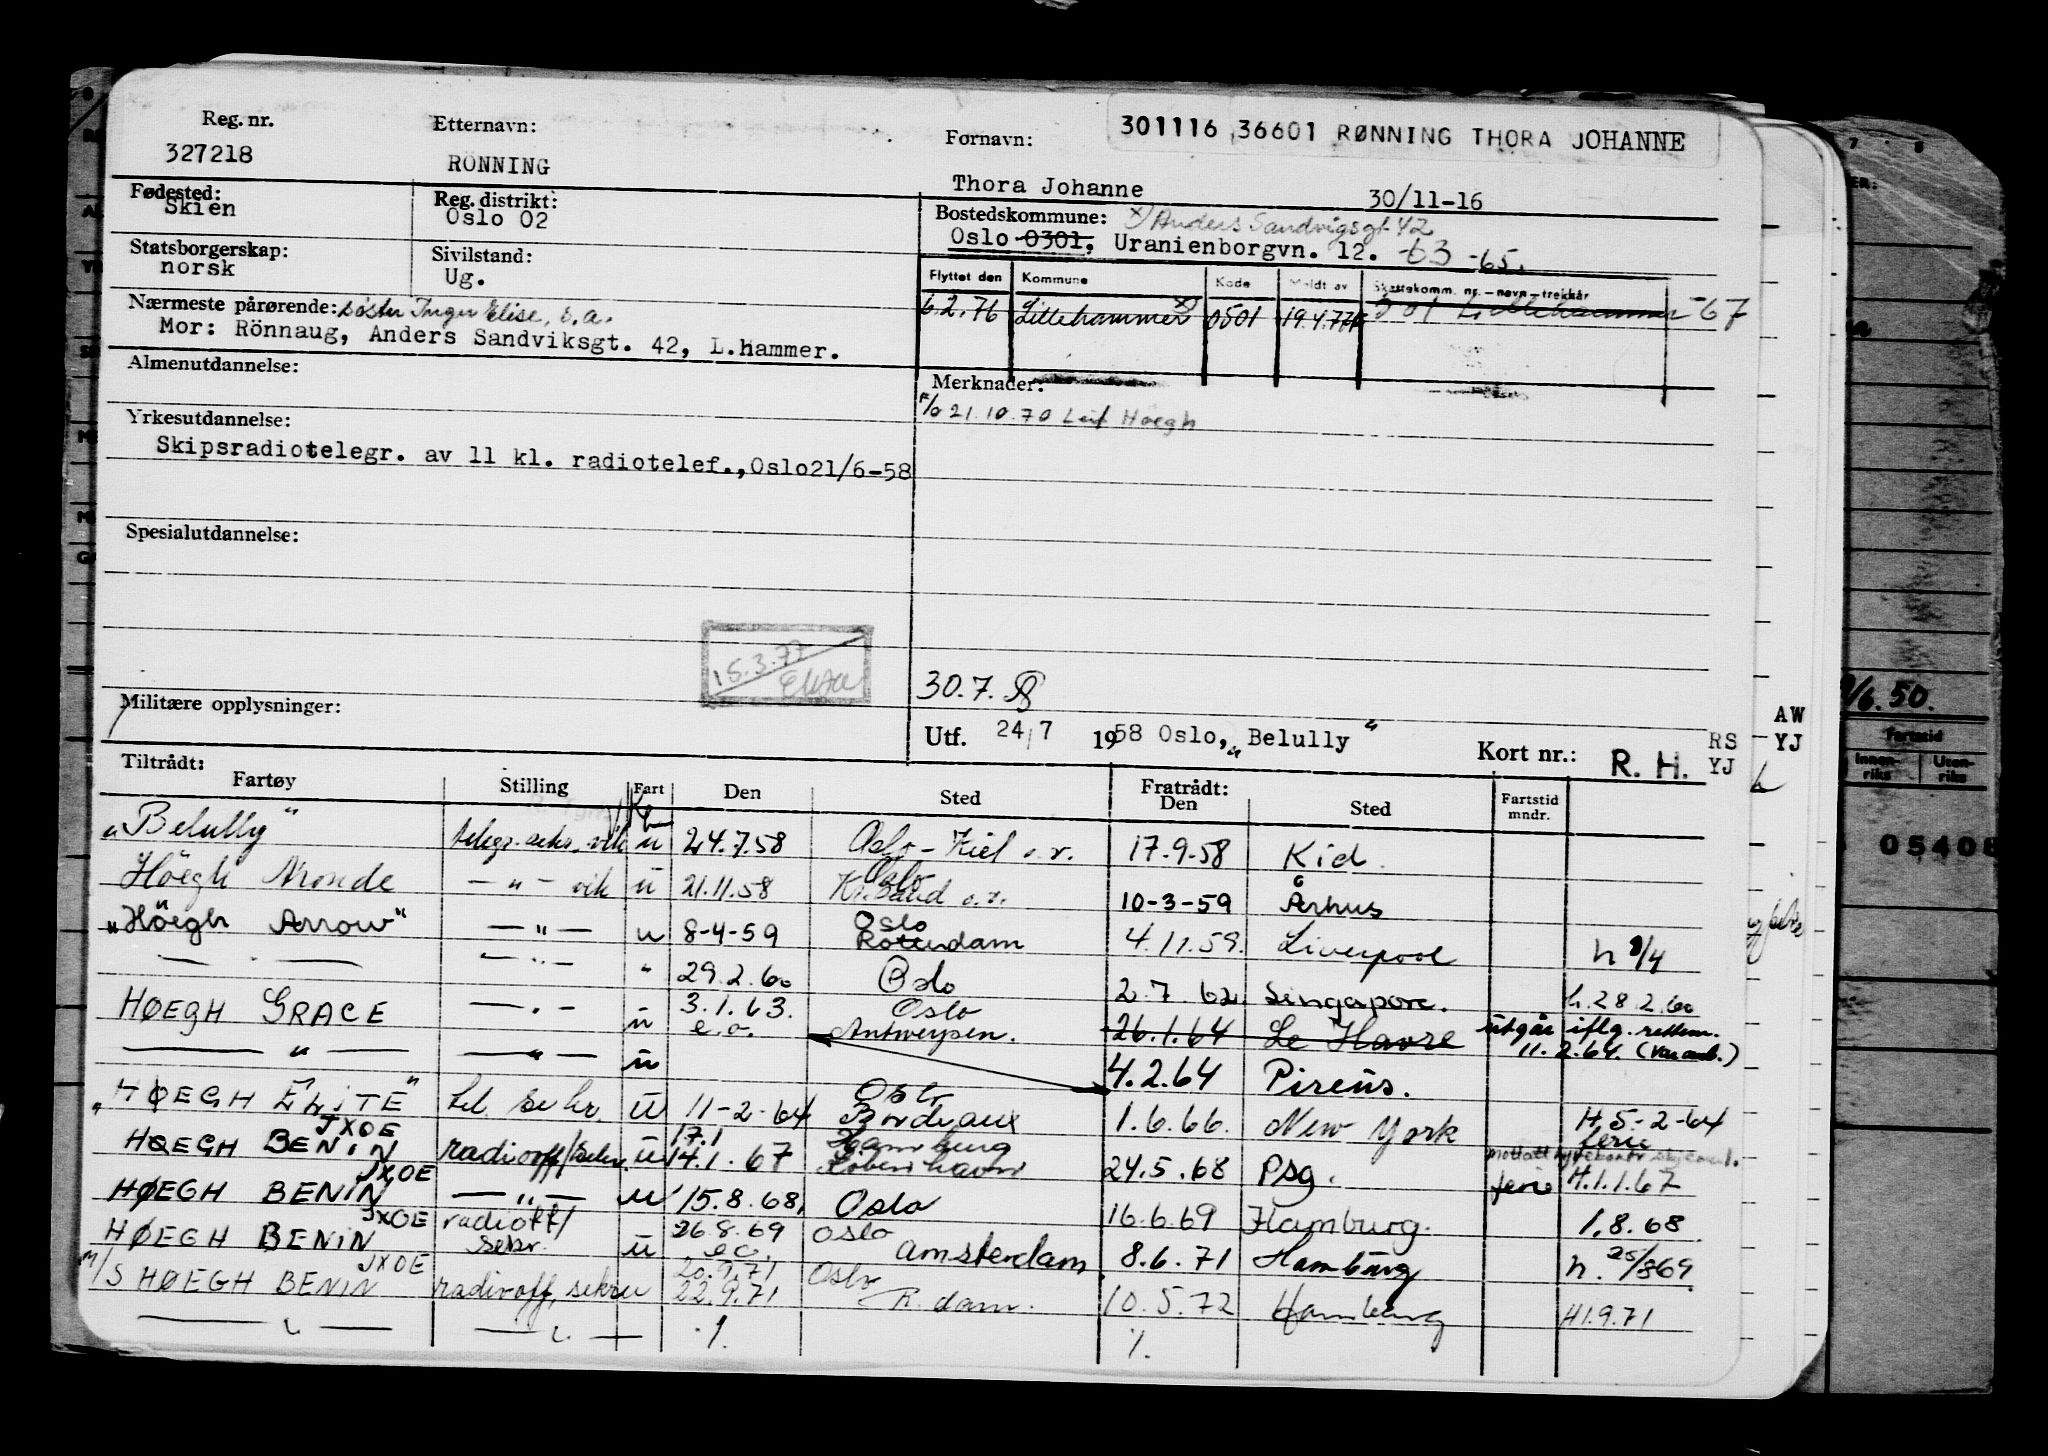 301116 36601 RØNNING THORA JOHANNE
Reg. nr. Etternavn: Fornavn:
327218 RÖNNING Thora Johanne 30/11-16
Fødested: Reg. distrikt: Bostedskommune: x) Anders Sandvigsgt 42
Skien Oslo 02 Oslo 0301, Uranienborgvn. 12. t3 -65.
Statsborgerskap: Sivilstand:
norsk Ug.
Flyttet den Kommune Kode Meldt av Skattekomm. nr. – navn – trekkår
6.2.76 Lillehammer x) 0501 19.4.77 501 Lillehammer -67
Nærmeste pårørende: søster Inger Elise, s.a.
Mor: Rönnaug, Anders Sandviksgt. 42, L.hammer.
Almenutdannelse: Merknader:
F/o 21.10.70 Leif Höegh
Yrkesutdannelse:
Skipsradiotelegr. av 11 kl. radiotelef.,Oslo21/6-58
Spesialutdannelse:
15.3.77
30.7.
Militære opplysninger:
Utf. 24/7 1958 Oslo, „Belully" Kort nr.: R. H.
RS
YJ
AW
YJ
Tiltrådt: Fratrådt:
Fartøy Stilling Fart Den Sted Den Sted Fartstid mndr.
„Belully" telegr. sekr. vik u 24.7.58 Oslo - Kiel o.r. 17.9.58 Kiel.
Höegh Aronde — " — vik u 21.11.58 Oslo Kr.sand o.r. 10-3-59 Århus
„Höegh Arrow" — " — u 8-4-59 Oslo Rotterdam 4.11.59. Liverpool h 8/4
— " — — " — " 29.2.60 Oslo 2.7.62. Singapore. h.28.2.60
HØEGH GRACE — " — u 3.1.63. e.o. Oslo Antwerpen. 26.1.64 Le Havre utgår iflg. rettem. 11.2.64.
— " — — " — u 4.2.64 Pireus.
„HØEGH ELITE" tel sekr. u 11-2-64 Oslo Bordeaux 1.6.66. New York H 5-2-64
ferie
HØEGH BENIN JXOE radiooff/sekr. u 17.1 14.1.67 Hamburg Köbenhavn 24.5.68 Psg. ferie H.1.1.67
HØEGH BENIN JXOE — " — u 15.8.68, Oslo 16.6.69 Hamburg. 1.8.68
HØEGH BENIN JXOE radioff/ sekr. u 26.8.69 e.o. Oslo Amsterdam 8.6.71 Hamburg h. 25/869
M/S HØEGH BENIN JXOE radiooff, sekr u 20.9.71 22.9.71 Oslo R.dam. 10.5.72 Hamburg H1.9.71
— " — — " — ./. ./.
/6.50.
Fartstid
Innen-
riks
Uten-
riks
05408